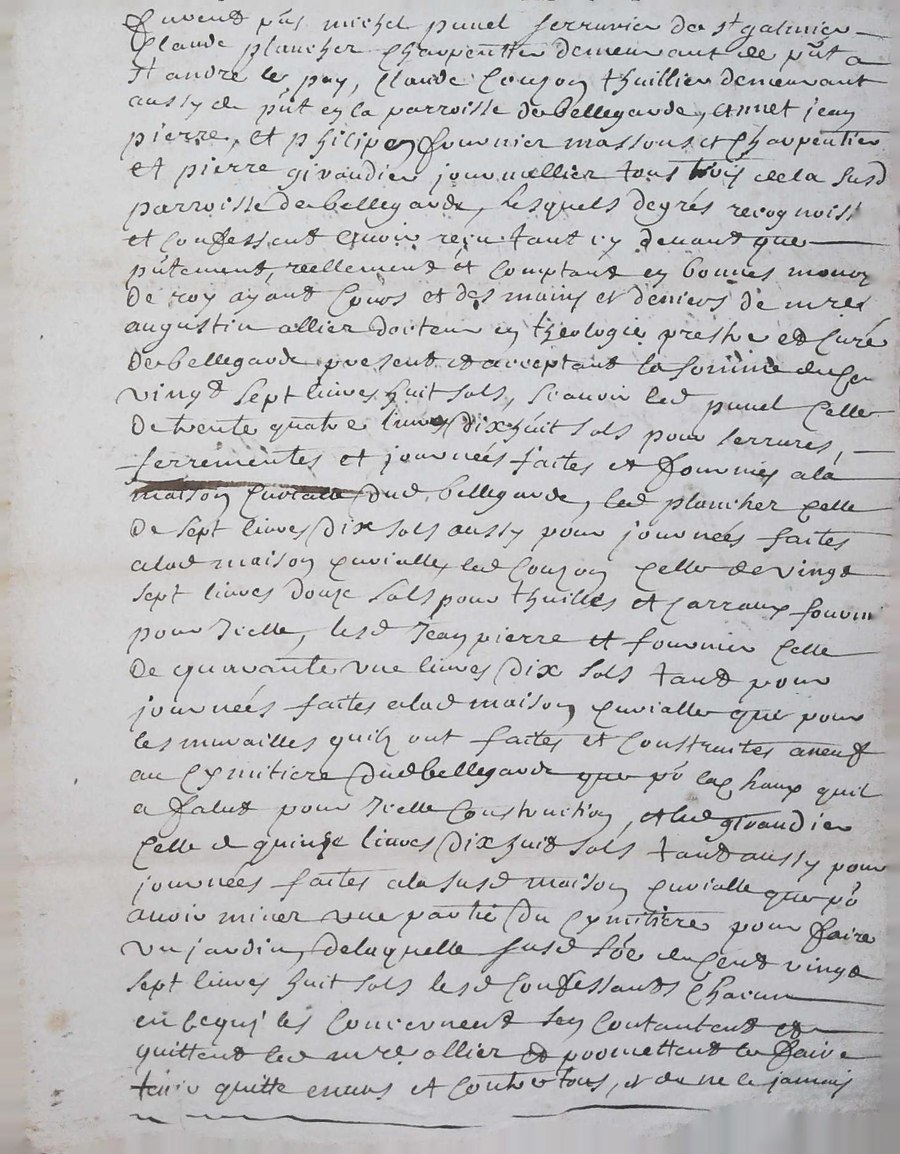 furent pñts michel punel serrurier de st galmier
Claude plancher Charpentier demeurant de pñt a
st andré le puy, Claude Couzon thuillier demeurant
aussy de pñt en la parroisse de bellegarde, annet jean
pierre, et philipe fournier massons et Charpentier
et pierre giraudier journallier tous trois de la susd
parroisse de bellegarde, lesquels de grés recognoiss
et Confessent avoir reçu tant cy devant que
pñtement, réellement et Comptant en bonnes monoy
de roy ayant Cours et des mains et deniers de mre
augustin allier docteur en théologie prestre et Curé
de bellegarde present et acceptant la somme de Cent
vingt sept livres huit sols, scavoir led punel Celle
de trente quatre livres dix huit sols pour serrures,
ferrementes et journées faites et fournies a la
maison Curialle dud bellegarde, led plancher Celle
de sept livres dix sols aussy pour journées faites
a lad maison Curialle, led Couzon Celle de vingt
sept livres douze sols pour thuilles et Carraux fourni
pour Icelle, lesd Jean pierre et fournier Celle
de quarante une livres dix sols tant pour
journées faites a lad maison Curialle que pour
les murailles quilz ont faites et Construites a neuf
au Cymitiere dud bellegarde que pr la Chaux quil
a falut pour Icelle Construction, et led giraudier
Celle de quinze livres dix huit sols tant aussy pour
journées faites a la susd maison Curialle que pr
avoir miner une partie du Cymitière pour faire
un jardin, de laquelle susd sõe de Cent vingt
sept livres huit sols lesd Confessants Chacun
en ce qui les Concernent sen Contantent et
quittent led mre allier et promettent le faire
tenir quitte envers et Contre tous, et de ne le jamais